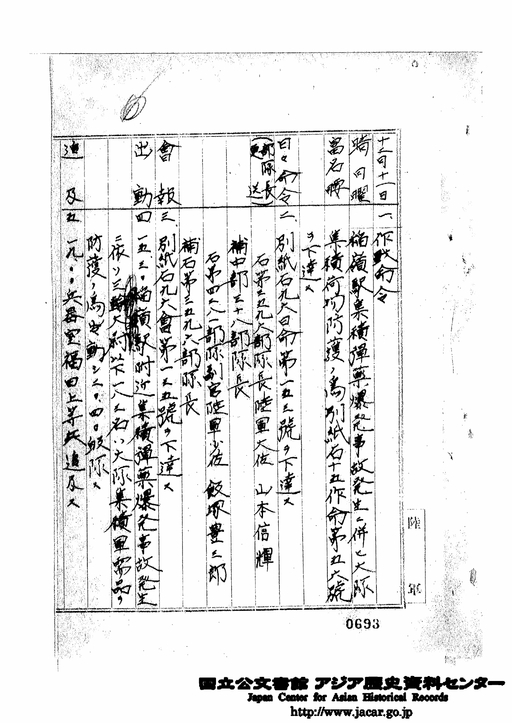 十二月十一日
晴 日曜
富石暉
一、作戰命令
福嶺駅集積彈藥爆発事故発生ニ伴ヒ大隊
集積荷物防護ノ為別紙石十五作命第五六號
ヲ下達ス
日々命令
(部隊長更送)
二、別紙石九六日命第一五三號ヲ下達ス
石第三五九六部隊長陸軍大佐 山本信輝
補中部三十八部隊長
石第四二八二部隊副官陸軍少佐 飯塚豊三郎
補石第三五九六部隊長
會報
三、別紙石九六會第一三五號ヲ下達ス
出動
四、一五三〇稲嶺駅附近集積彈藥爆発事故発生
ニ依リ三輪大尉以下一八三名ハ大隊集積軍需品ノ
防護ノ為出動シ二〇四〇帰隊ス
追及
五、一九〇〇兵器室福田上等兵追及ス
陸軍
0693
国立公文書館 アジア歴史資料センター
Japan Center for Asian Historical Records
http://www.jacar.go.jp